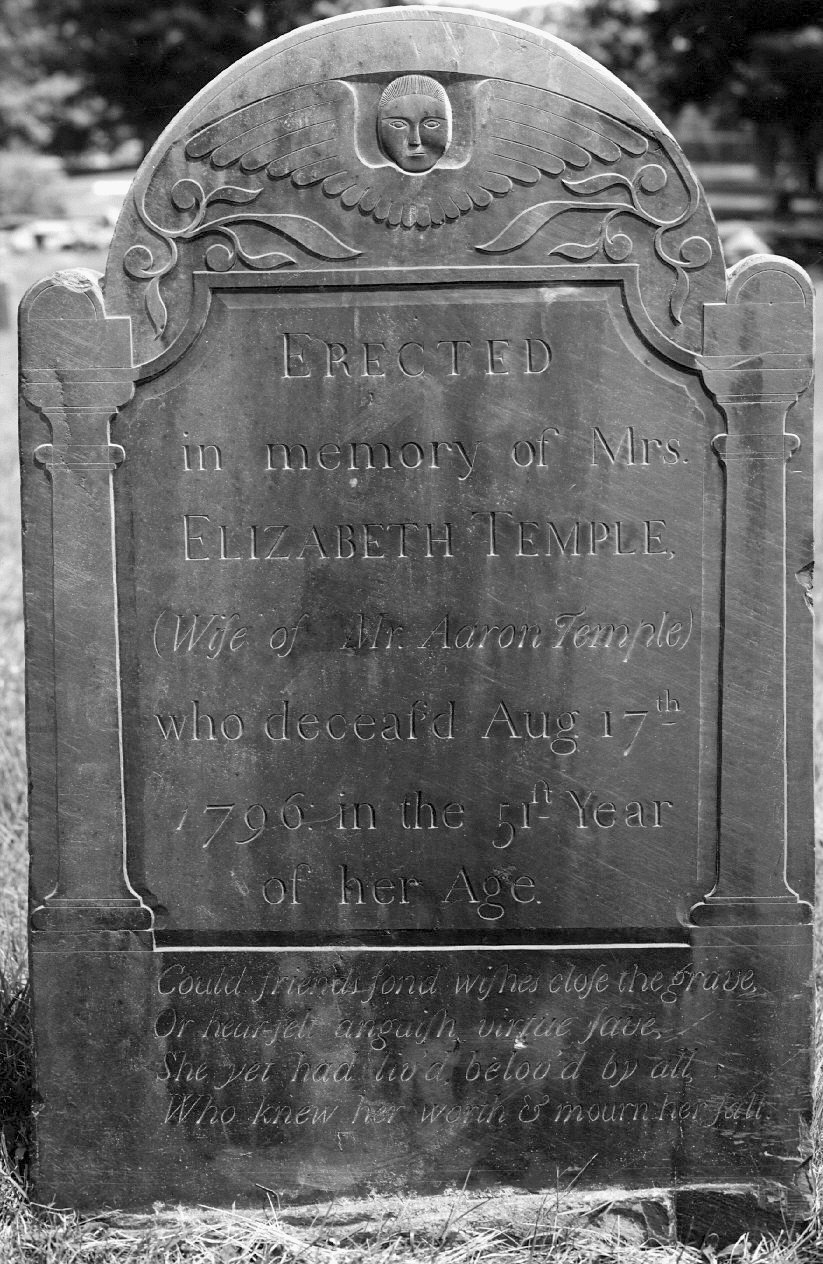 ERECTED
in memory of Mrs.
ELIZABETH TEMPLE,
(Wife of Mr. Aaron Temple)
who deceaſ'd Aug. 17th
1796. in the 51ſt Year
of her Age.
Could friends fond wiſhes cloſe the grave,
Or hear-felt anguiſh, virtue ſave,
She yet had liv'd, belov'd by all,
Who knew her worth & mourn her fall.